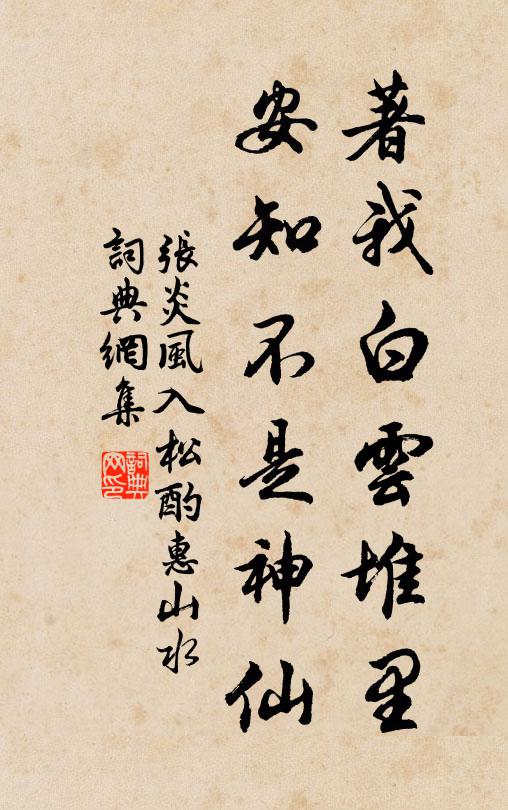 著我白雲堆里
安知不是神仙
張炎風入松酌惠山水
詞典網集
詞典網印